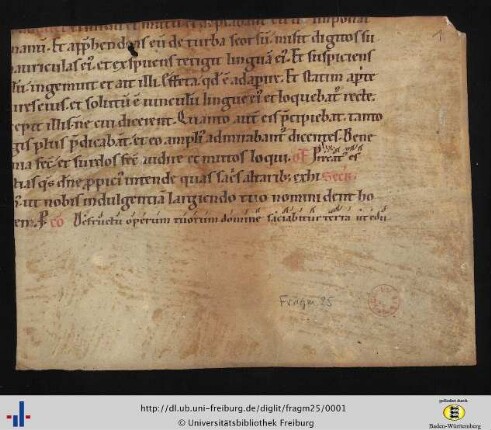 manū. Et apphendens eū de turba seorsū. misit digitos su
auriculas ei. et expuens tetigit linguā ei. Et suspiciens
lū. ingemuit et ait illi. Effeta. qd ē adapire. Et statim apte
ures eius. et solutū ē vinculū lingue ei. et loquebat recte.
cepit illis ne cui dicerent. Quanto aut eis pcipiebat. tanto
gis plus pdicabant. et eo ampli admirabant dicentes. Bene
nia fec. et surdos fec audire et mutos loqui. OF Precat es
tias qs dne ppici intende quas sacris altarib exhi SECR
ut nobis indulgentia largiendo tuo nomini dent ho
CO De fructu operum tuorum domine saciabitur terra ut edu
Fragm. 25
1
http://dl.ub.uni-freiburg.de/diglit/fragm25/0001
© Universitätsbibliothek Freiburg
gefördert durch
Baden-Württemberg